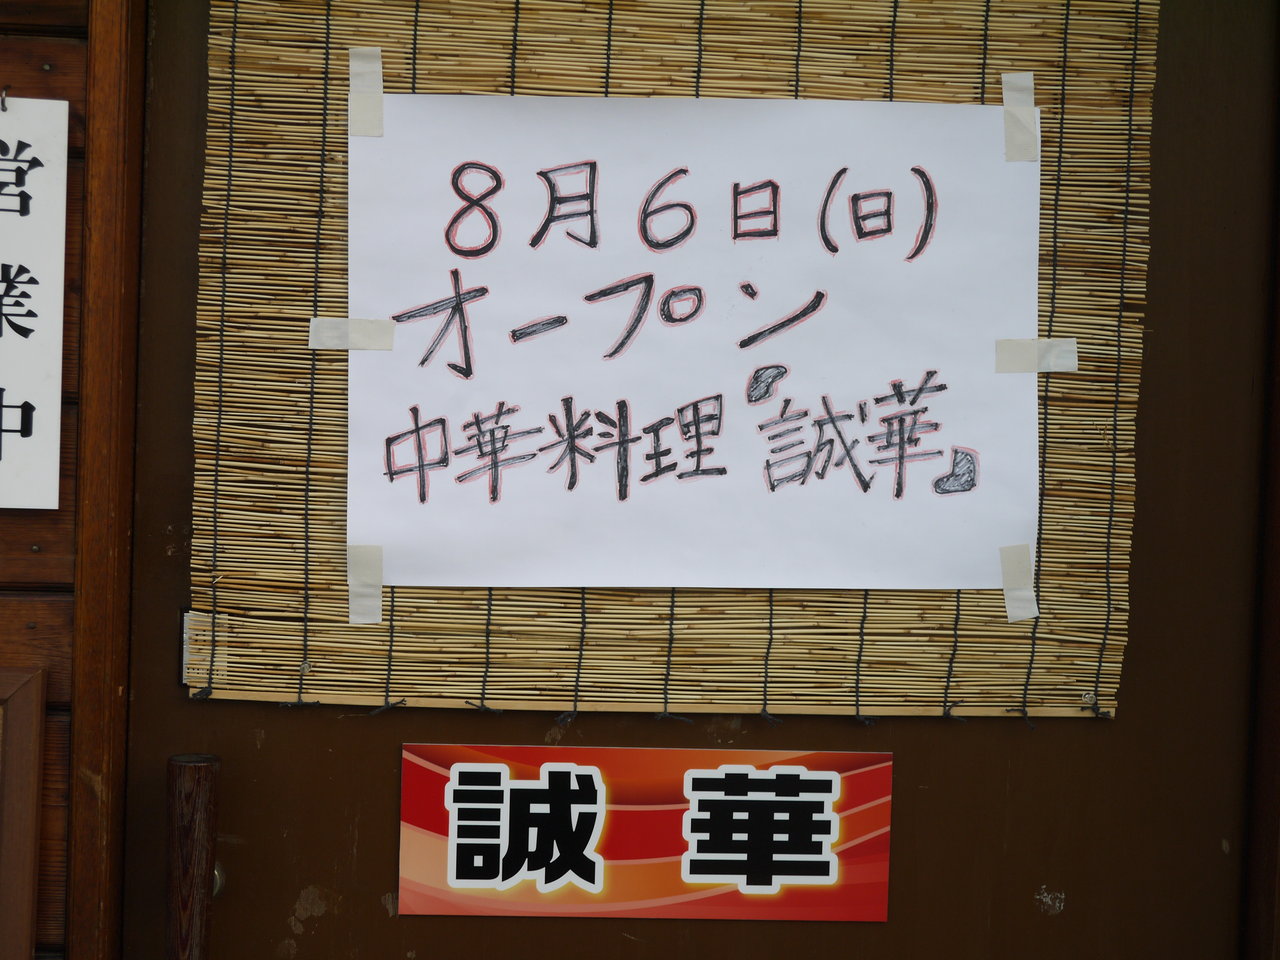 営業中
8月6日(日)
オープン
中華料理『誠華』
誠華